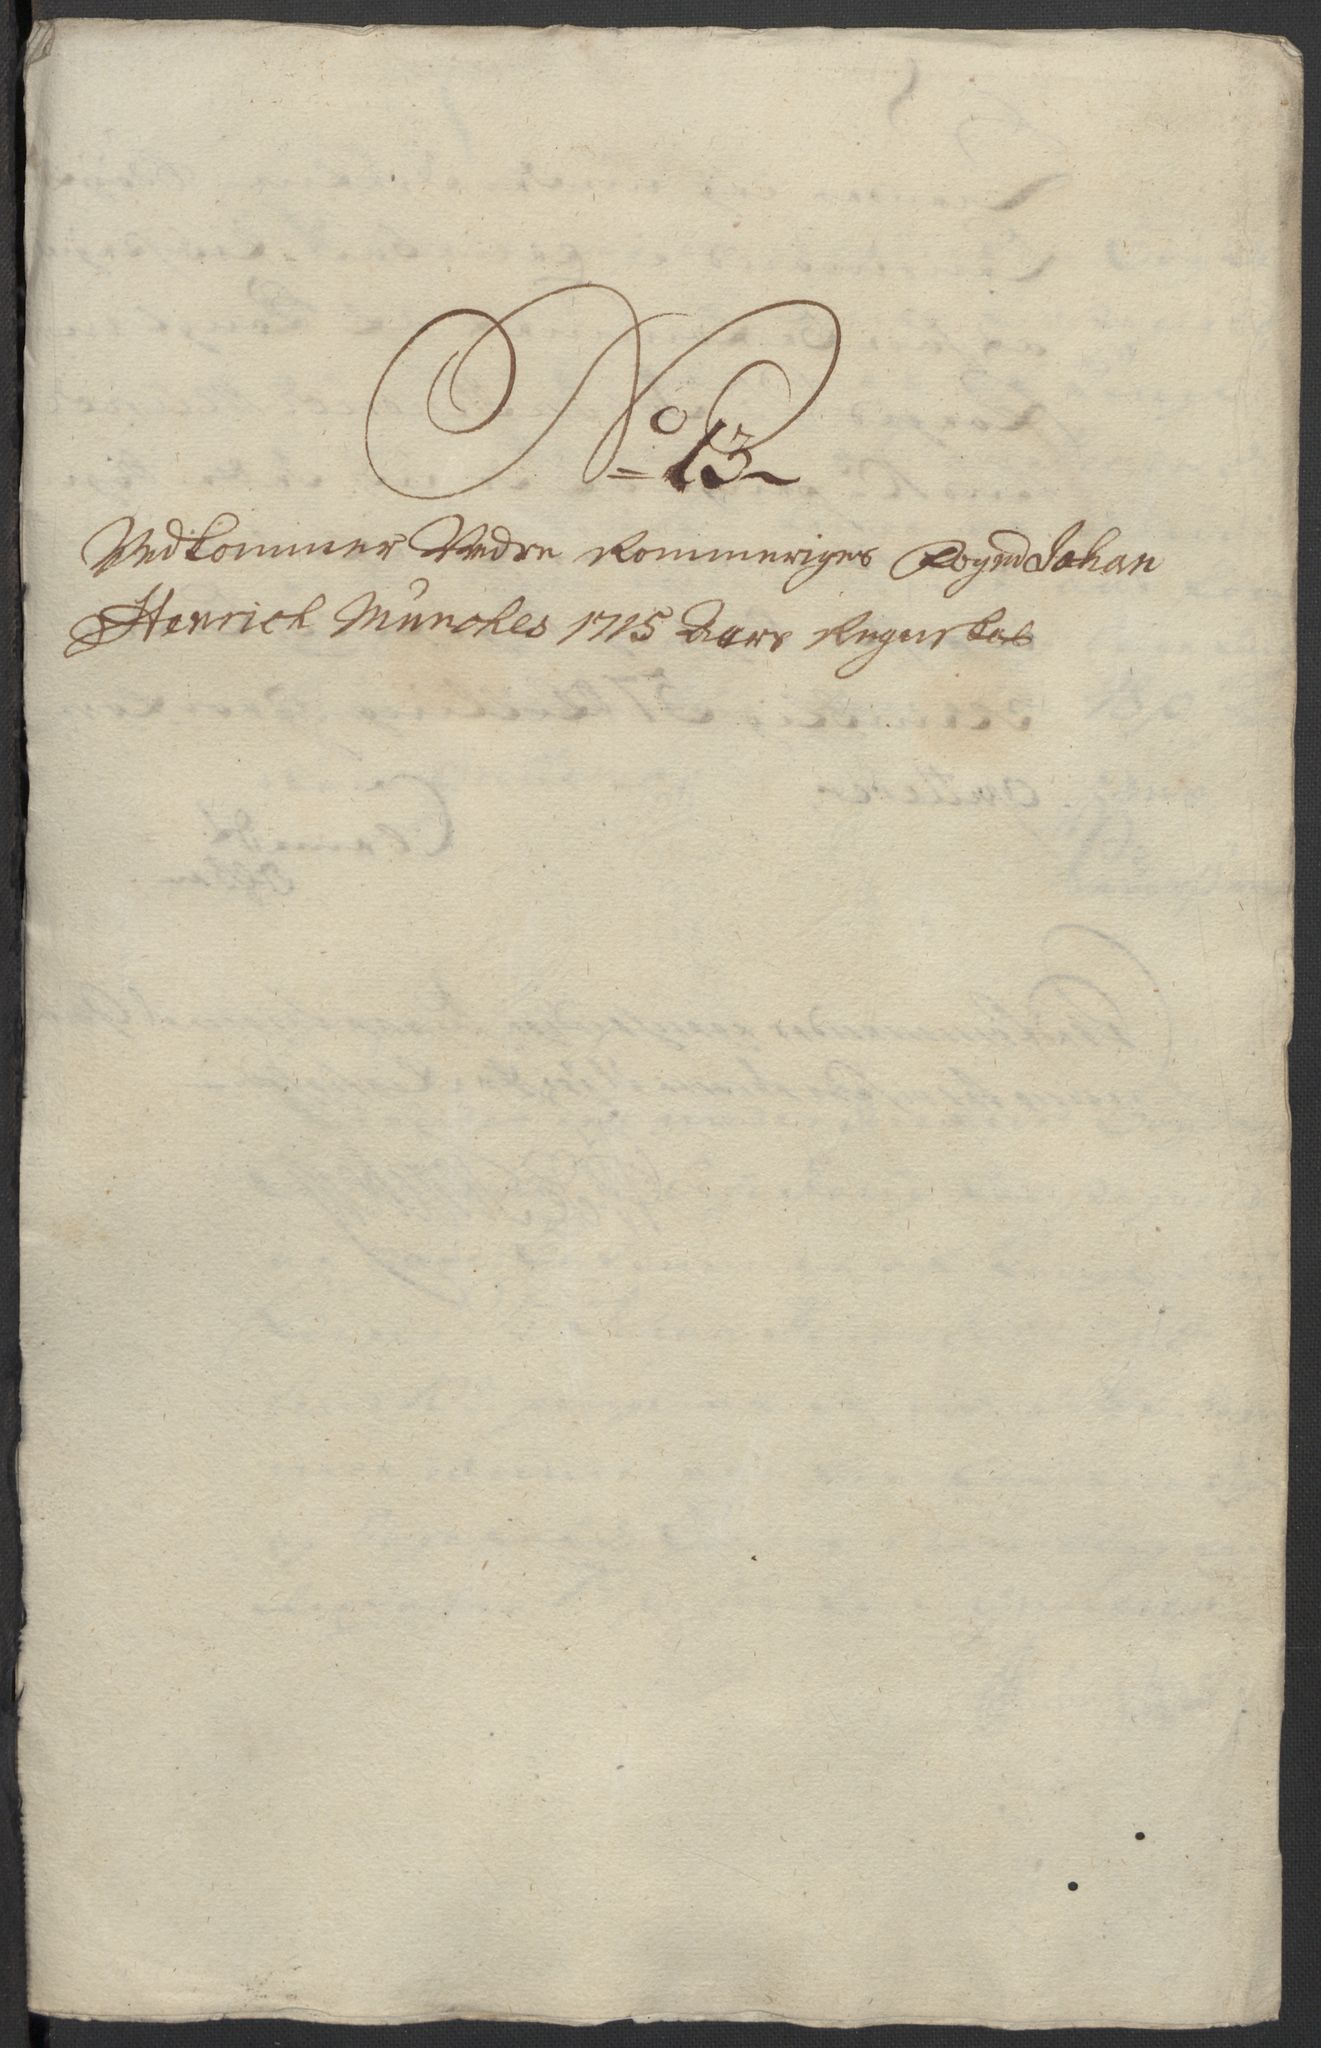 No 13
Vedkommer Nedre Rommeriges Foged Johan
Henrich Münches 1715 Aars Regnskab